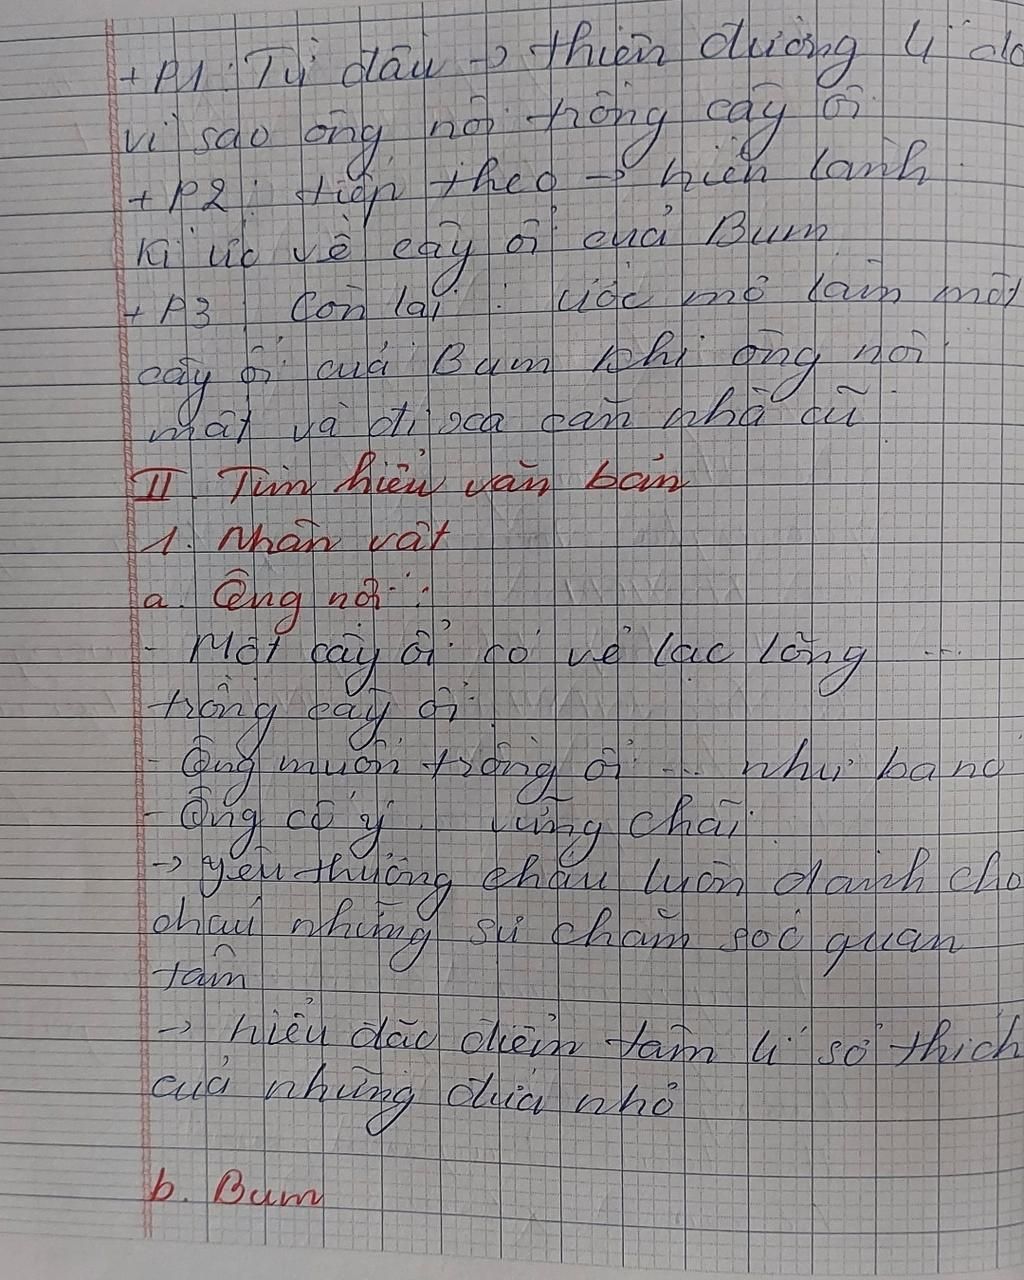 + P1: Từ đầu → thiên đường lí do
vì sao ông nội trồng cây ổi
+ P2: tiếp theo → hiền lành
Kí ức về cây ổi của Bum
+ P3 Còn lại : ước mơ làm một
cây ổi của Bum khi ông nội
mất và đi xa căn nhà cũ
II. Tìm hiểu văn bản
1. Nhân vật
a. Ông nội :
- Một cây ổi có vẻ lạc lõng ...
trồng cây ổi
- Ông muốn trồng ổi ... như bang
- Ông cố ý .. vững chãi
→ yêu thương cháu luôn dành cho
cháu những sự chăm sóc quan
tâm
→ hiểu đặc điểm tâm lí sở thích
của những đứa nhỏ
b. Bum